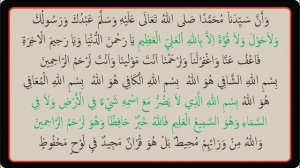 وَأَنَّ سَيِّدَنَا مُحَمَّدًا صَلَّى اللهُ تَعَالَى عَلَيْهِ وَسَلَّمَ عَبْدُكَ وَرَسُولُكَ
وَلَاحَوْلَ وَلَا قُوَّةَ اِلَّا بِاللهِ الْعَلِيِّ الْعَظِيمِ يَا رَحْمٰنَ الدُّنْيَا وَيَا رَحِيمَ الْاٰخِرَةِ
فَاعْفُ عَنَّا وَاغْفِرْلَنَا وَارْحَمْنَا اَنْتَ مَوْلٰينَا وَاَنْتَ اَرْحَمُ الرَّاحِمِينَ
بِسْمِ اللهِ الشَّافِي هُوَ اللهُ بِسْمِ اللهِ الْكَافِي هُوَ اللهُ بِسْمِ اللهِ الْمُعَافِي
هُوَ اللهُ بِسْمِ اللهِ الَّذِي لَا يَضُرُّ مَعَ اسْمِهِ شَيْءٌ فِي الْاَرْضِ وَلَا فِي
السَّمَاءِ وَهُوَ السَّمِيعُ الْعَلِيمُ فَاللهُ خَيْرٌ حَافِظًا وَهُوَ اَرْحَمُ الرَّاحِمِينَ
وَاللهُ مِنْ وَرَائِهِمْ مُحِيطٌ بَلْ هُوَ قُرْاٰنٌ مَجِيدٌ فِي لَوْحٍ مَحْفُوظٍ